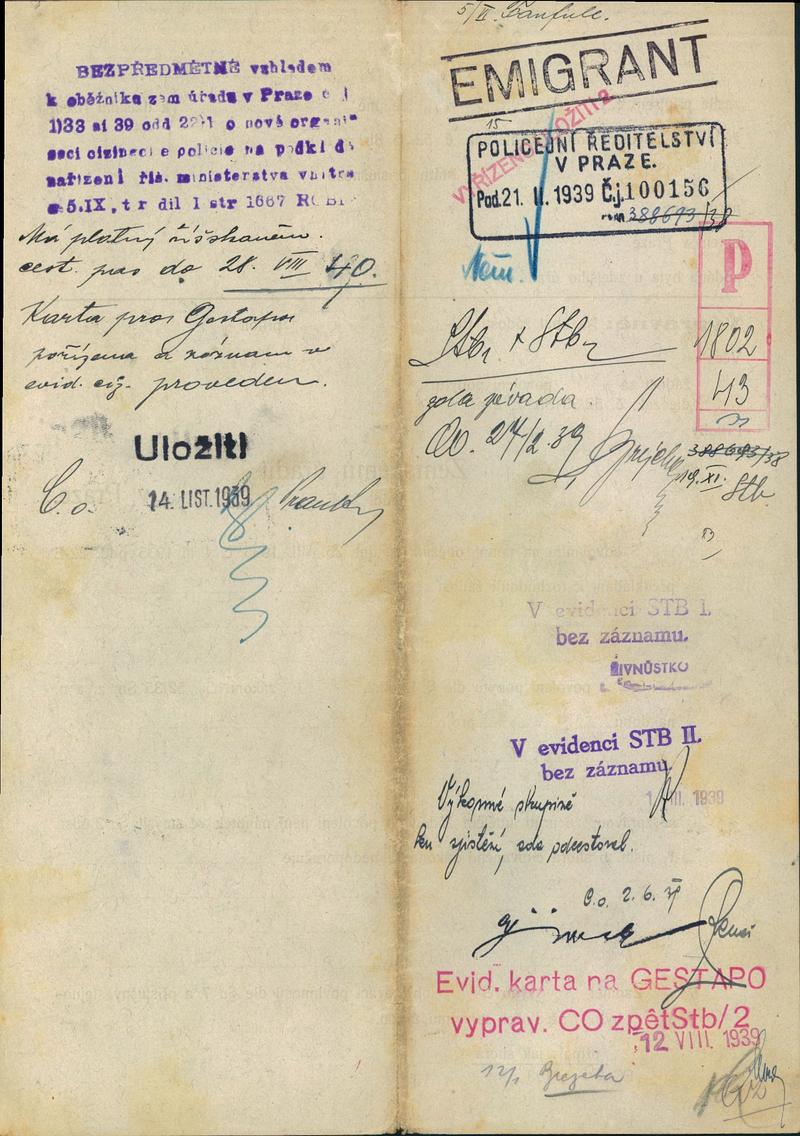 BEZPŘEDMĚTNÉ vzhledem
k oběžníku zem úřadu v Praze
1)33 ai 39 odd 22 o nové organi
saci cizinecké policie na podkl
nařízení říš. ministerstva vnitra
5.IX, t r díl I str 1667
Má platný
cest. pas do 28. VIII 40.
Karta pro Gestapo
pořízena a záznam v
evid. ciz. proveden.
Uložiti
C. o. 14. LIST. 1939
5/II.
EMIGRANT
VYŘÍZENO ULOŽITI 2
15
POLICEJNÍ ŘEDITELSTVÍ
V PRAZE.
Pod. 21. II. 1939 Č.j. 100156
388693/38
Něm.
P
1802
43
Stb, + Stb
zdali závada
Co. 27/2.39
388693/38
19. XI.
Stb
V evidenci STB I.
bez záznamu.
ŽIVNŮSTKO
V evidenci STB II.
bez záznamu.
VIII. 1939
Výkonné skupině
ku zjištění, zda odcestoval.
C.o. 2. 6. 39
Evid. karta na GESTAPO
vyprav. CO zpět Stb/2
12 VIII. 1939